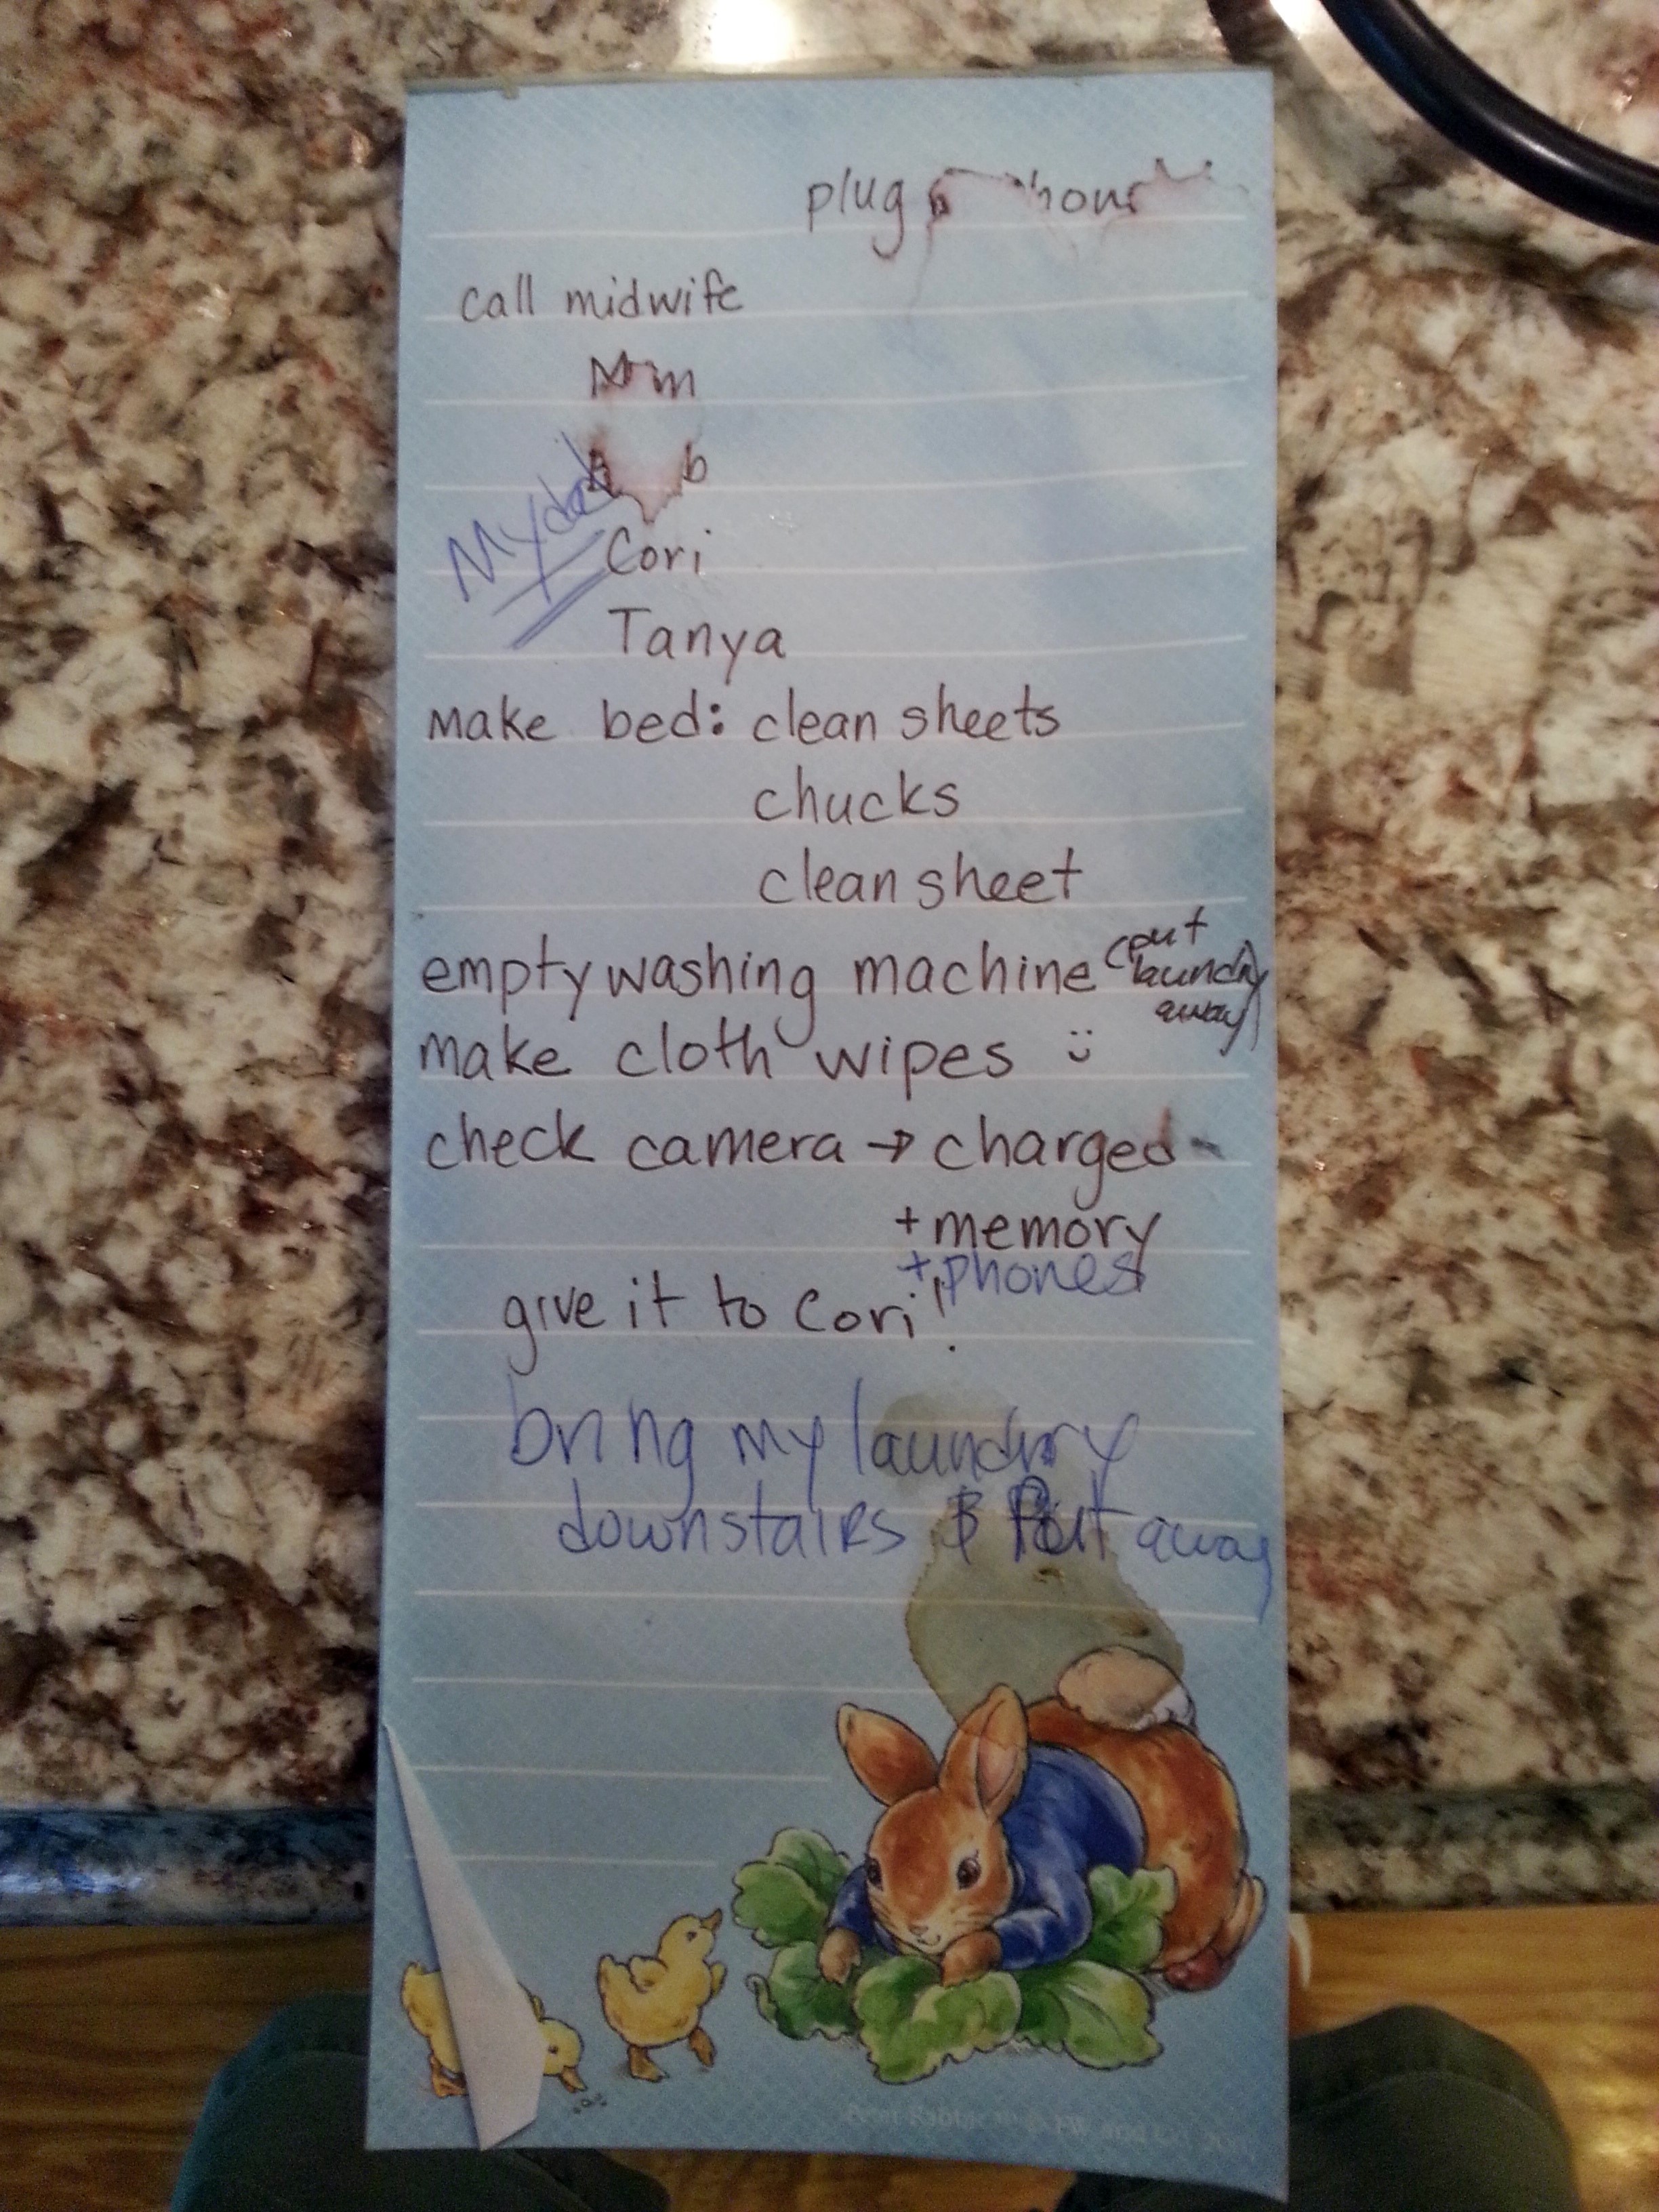 plug
call midwife
Mom
b
My dad
Cori
Tanya
make bed: clean sheets
chucks
clean sheet
empty washing machine (put laundry away)
make cloth wipes :)
check camera → charged
+ memory
+ phones
give it to Cori!
bring my laundry
downstairs & Put away